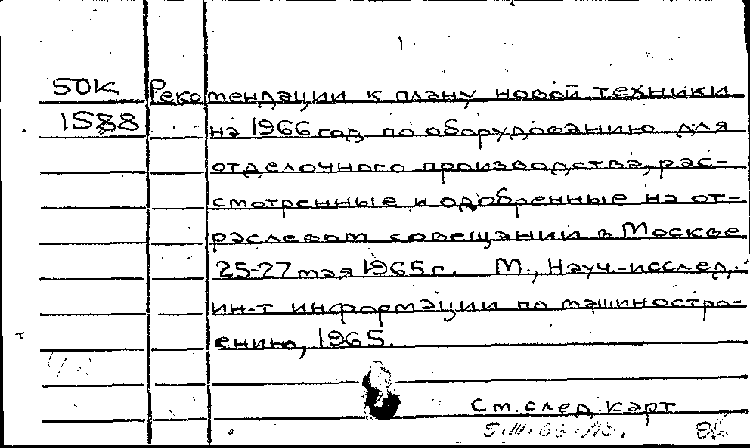 50К Рекомендации к плану новой техники
1588 на 1966 год по оборудованию для
отделочного производства, рас-
смотренные и одобренные на от-
раслевом совещании в Москве
25-27 мая 1965 г. М., Науч.-исслед.
ин-т информации по машиностро-
ению, 1965.
См. след. карт.